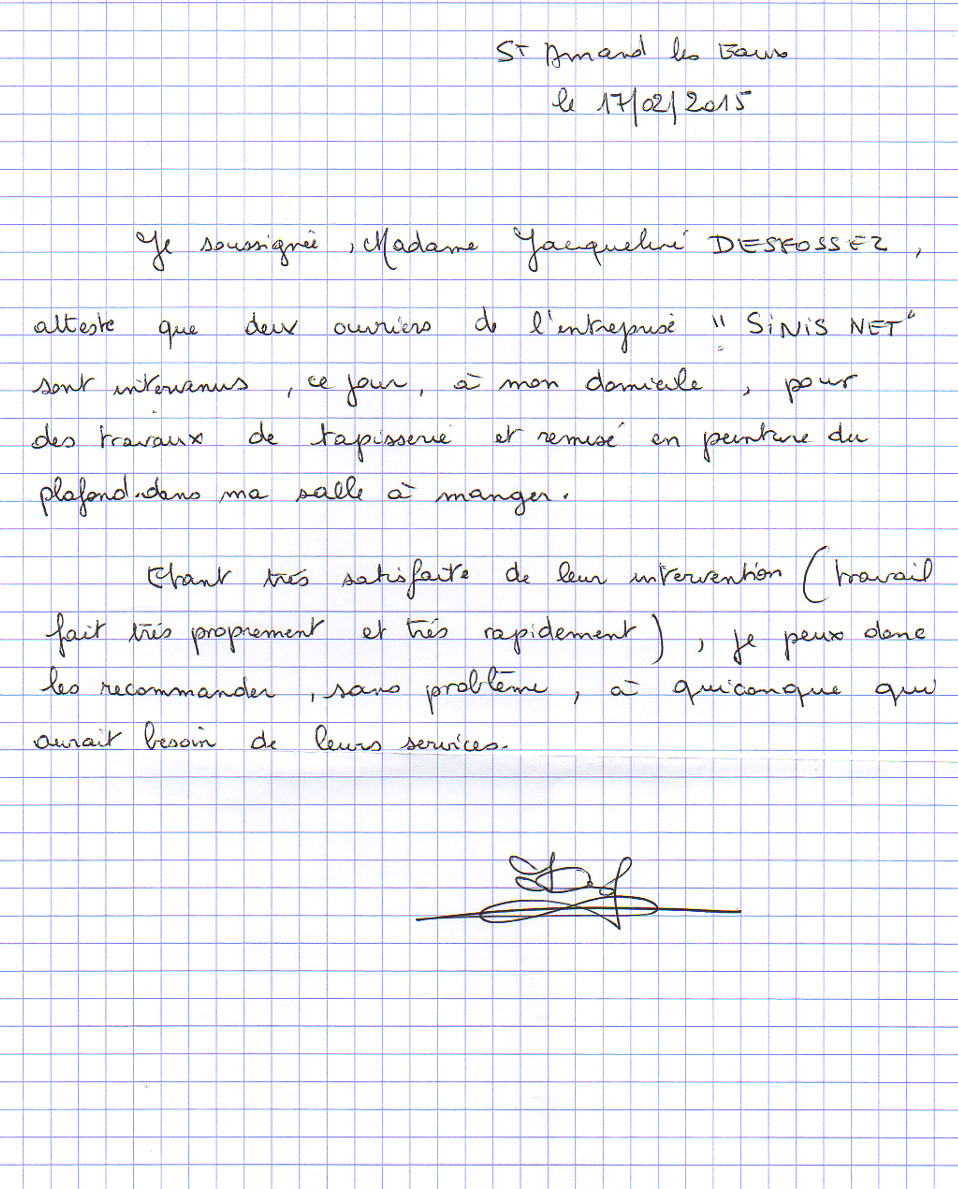 St Amand les Eaux
le 17/02/2015
Je soussignée, Madame Jacqueline DESFOSSEZ,
atteste que deux ouvriers de l'entreprise "SiNiS NET"
sont intervenus, ce jour, à mon domicile, pour
des travaux de tapisserie et remise en peinture du
plafond dans ma salle à manger.
Etant très satisfaite de leur intervention (travail
fait très proprement et très rapidement), je peux donc
les recommander, sans problème, à quiconque qui
aurait besoin de leurs services.